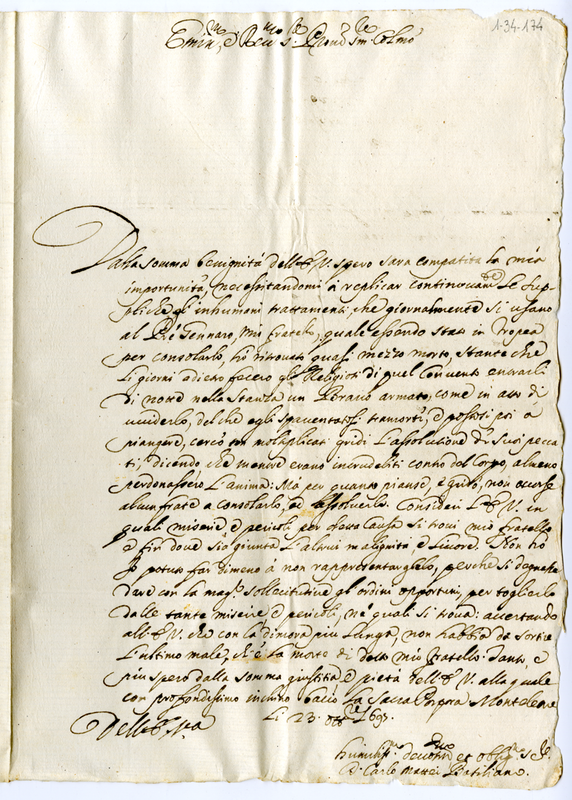 1-34-174
Emin.mo e Rev.mo Sig.
Dalla somma benignità dell'E. V. spero sarà compatita la mia
importunità, necessitandomi à replicar continovam.te le sup-
pliche gl'inhumani trattamenti, che giornalmente si usano
al Gennaro, mio fratello, quale essendo stato in Tropea
per consolarlo, hò ritrovato quasi mezzo morto, stante che
li giorni adietro fecero gli Religiosi di quel Convento entrarli
di notte nella stanza un armato, come in atto di
ucciderlo, del che egli spaventatosi tramortì, e postosi poi à
piangere, cercò con moltiplicati gridi l'assolutione de suoi pecca-
ti, dicendo che mentre erano incrudeliti contro del Corpo, almeno
perdonassero l'anima: Mà per quanto pianse, e gridò, non accorse
alcun frate à consolarlo, ed assolverlo. Consideri l'E. V. in
quali miserie e pericoli per detta causa si trovi mio fratello
e fin dove sia giunta l'altrui malignità e livore. Non hò
potuto far dimeno à non rappresentarglielo, perche si degni
dare con la mag.r sollecitudine gl'ordini opportuni, per toglierlo
dalle tante miserie e pericoli, ne quali si trova: accertando
all'E. V. che con la dimora più lunga, non habbia da sortire
l'ultimo male, ch'è la morte di detto mio fratello. Tanto, e
più spero dalla somma giustitia, e pietà dell'E. V. alla quale
con profondissimo inchino bacio la Sacra Porpora Monteleone
Li 23
Dell'E. V.ra
Humiliss.mo et oblig.mo
D. Carlo Mattei